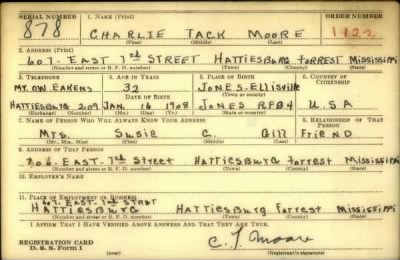 SERIAL NUMBER 1. NAME (Print) ORDER NUMBER
878 CHARLIE TACK MOORE 1122
(First) (Middle) (Last)
2. ADDRESS (Print)
607- EAST 7th STREET HATTIESBURG FORREST MISSISSIPPI
(Number and street or R. F. D. number) (Town) (County) (State)
3. TELEPHONE 4. AGE IN YEARS 5. PLACE OF BIRTH 6. COUNTRY OF CITIZENSHIP
MT. OW. EAKENS 32 JONES-Ellisville
DATE OF BIRTH (Town or county)
HATTIESBURG 209 JAN. 16 1908 JONES RFD4 U.S.A
(Exchange) (Number) (Mo.) (Day) (Yr.) (State or country)
7. NAME OF PERSON WHO WILL ALWAYS KNOW YOUR ADDRESS 8. RELATIONSHIP OF THAT PERSON
Mrs. Susie C. Gill FRIEND
(Mr., Mrs., Miss) (First) (Middle) (Last)
9. ADDRESS OF THAT PERSON
706- EAST- 7th Street HATTIESBURG Forrest Mississippi
(Number and street or R. F. D. number) (Town) (County) (State)
10. EMPLOYER'S NAME
11. PLACE OF EMPLOYMENT OR BUSINESS
607- EAST- 7th STREET
HATTIESBURG HATTIESBURG Forrest Mississippi
(Number and street or R. F. D. number) (Town) (County) (State)
I AFFIRM THAT I HAVE VERIFIED ABOVE ANSWERS AND THAT THEY ARE TRUE.
REGISTRATION CARD
D. S. S. Form 1 C. T. Moore
(Registrant's signature)